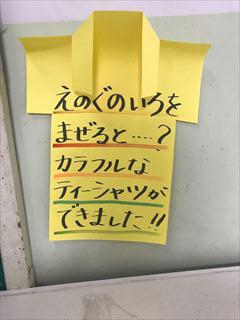 えのぐのいろを
まぜると……?
カラフルな
ティーシャツが
できました!!